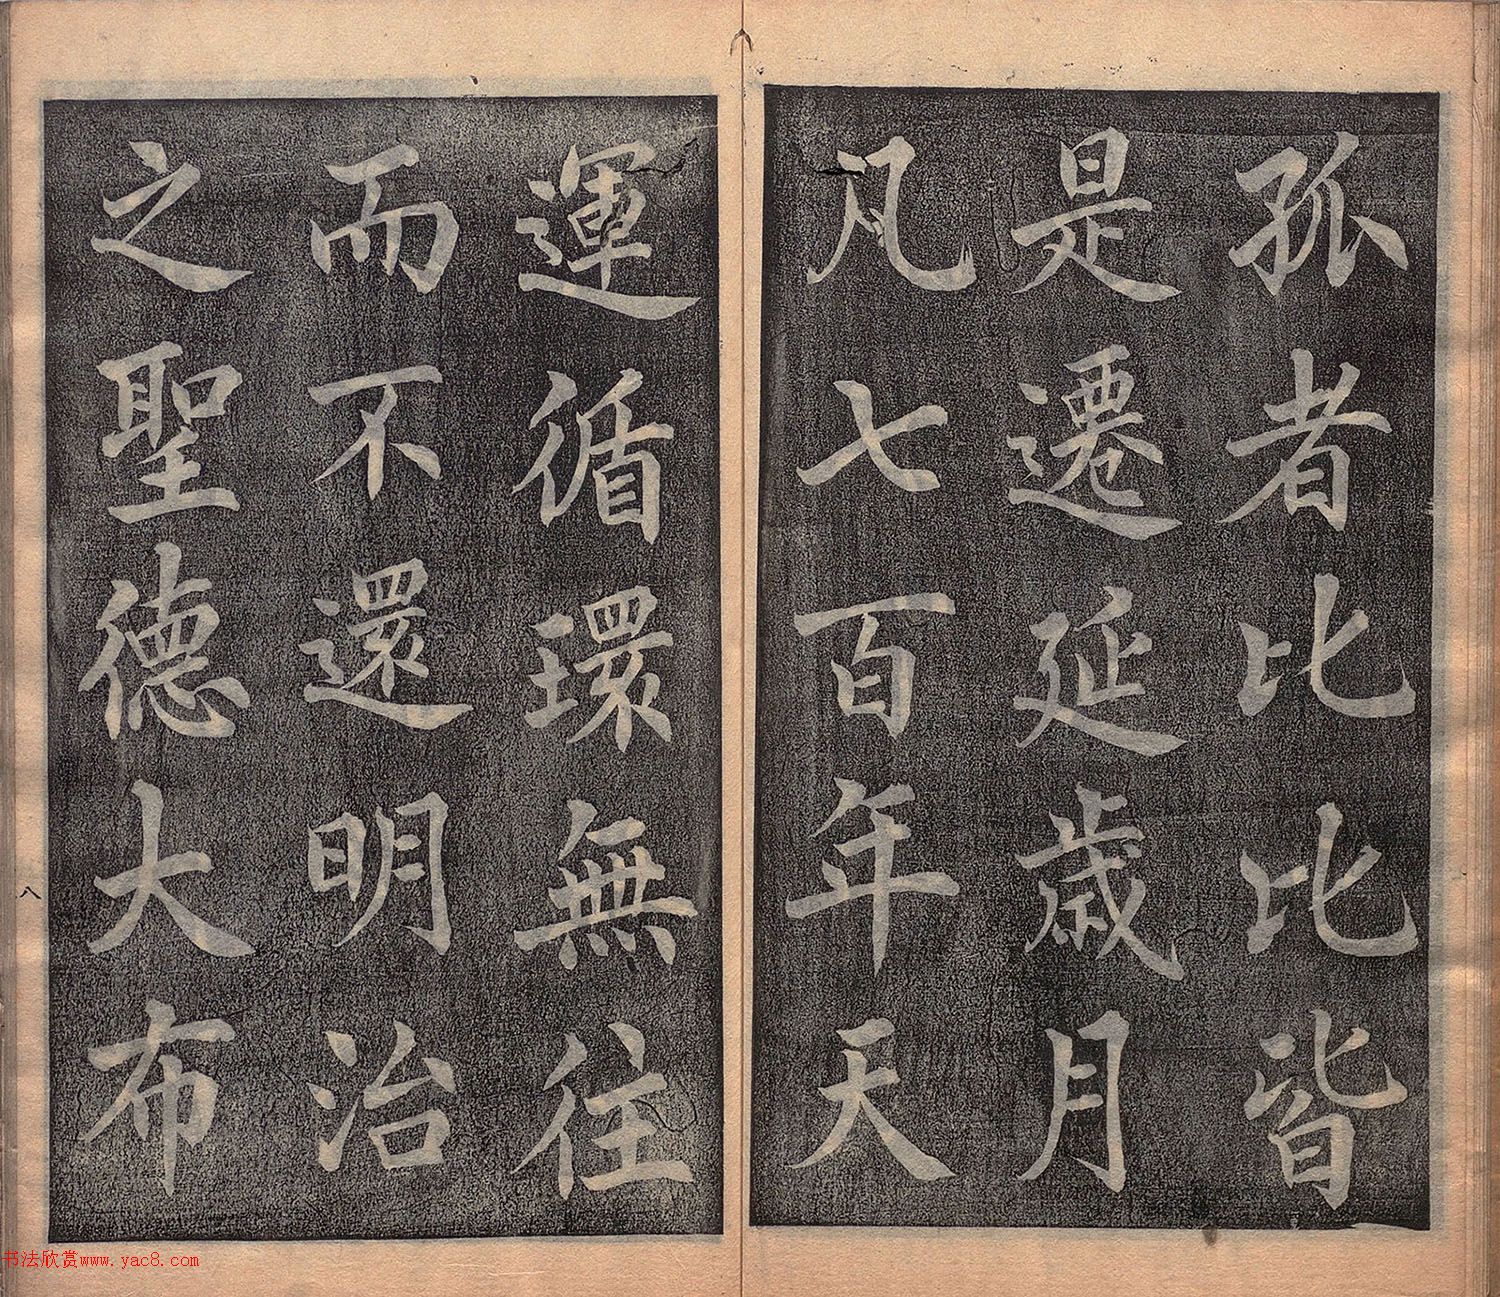 孤者比比皆
是遷延歲月
凡七百年天
運循環無往
而不還明治
之聖德大布
八
书法欣赏www.yac8.com